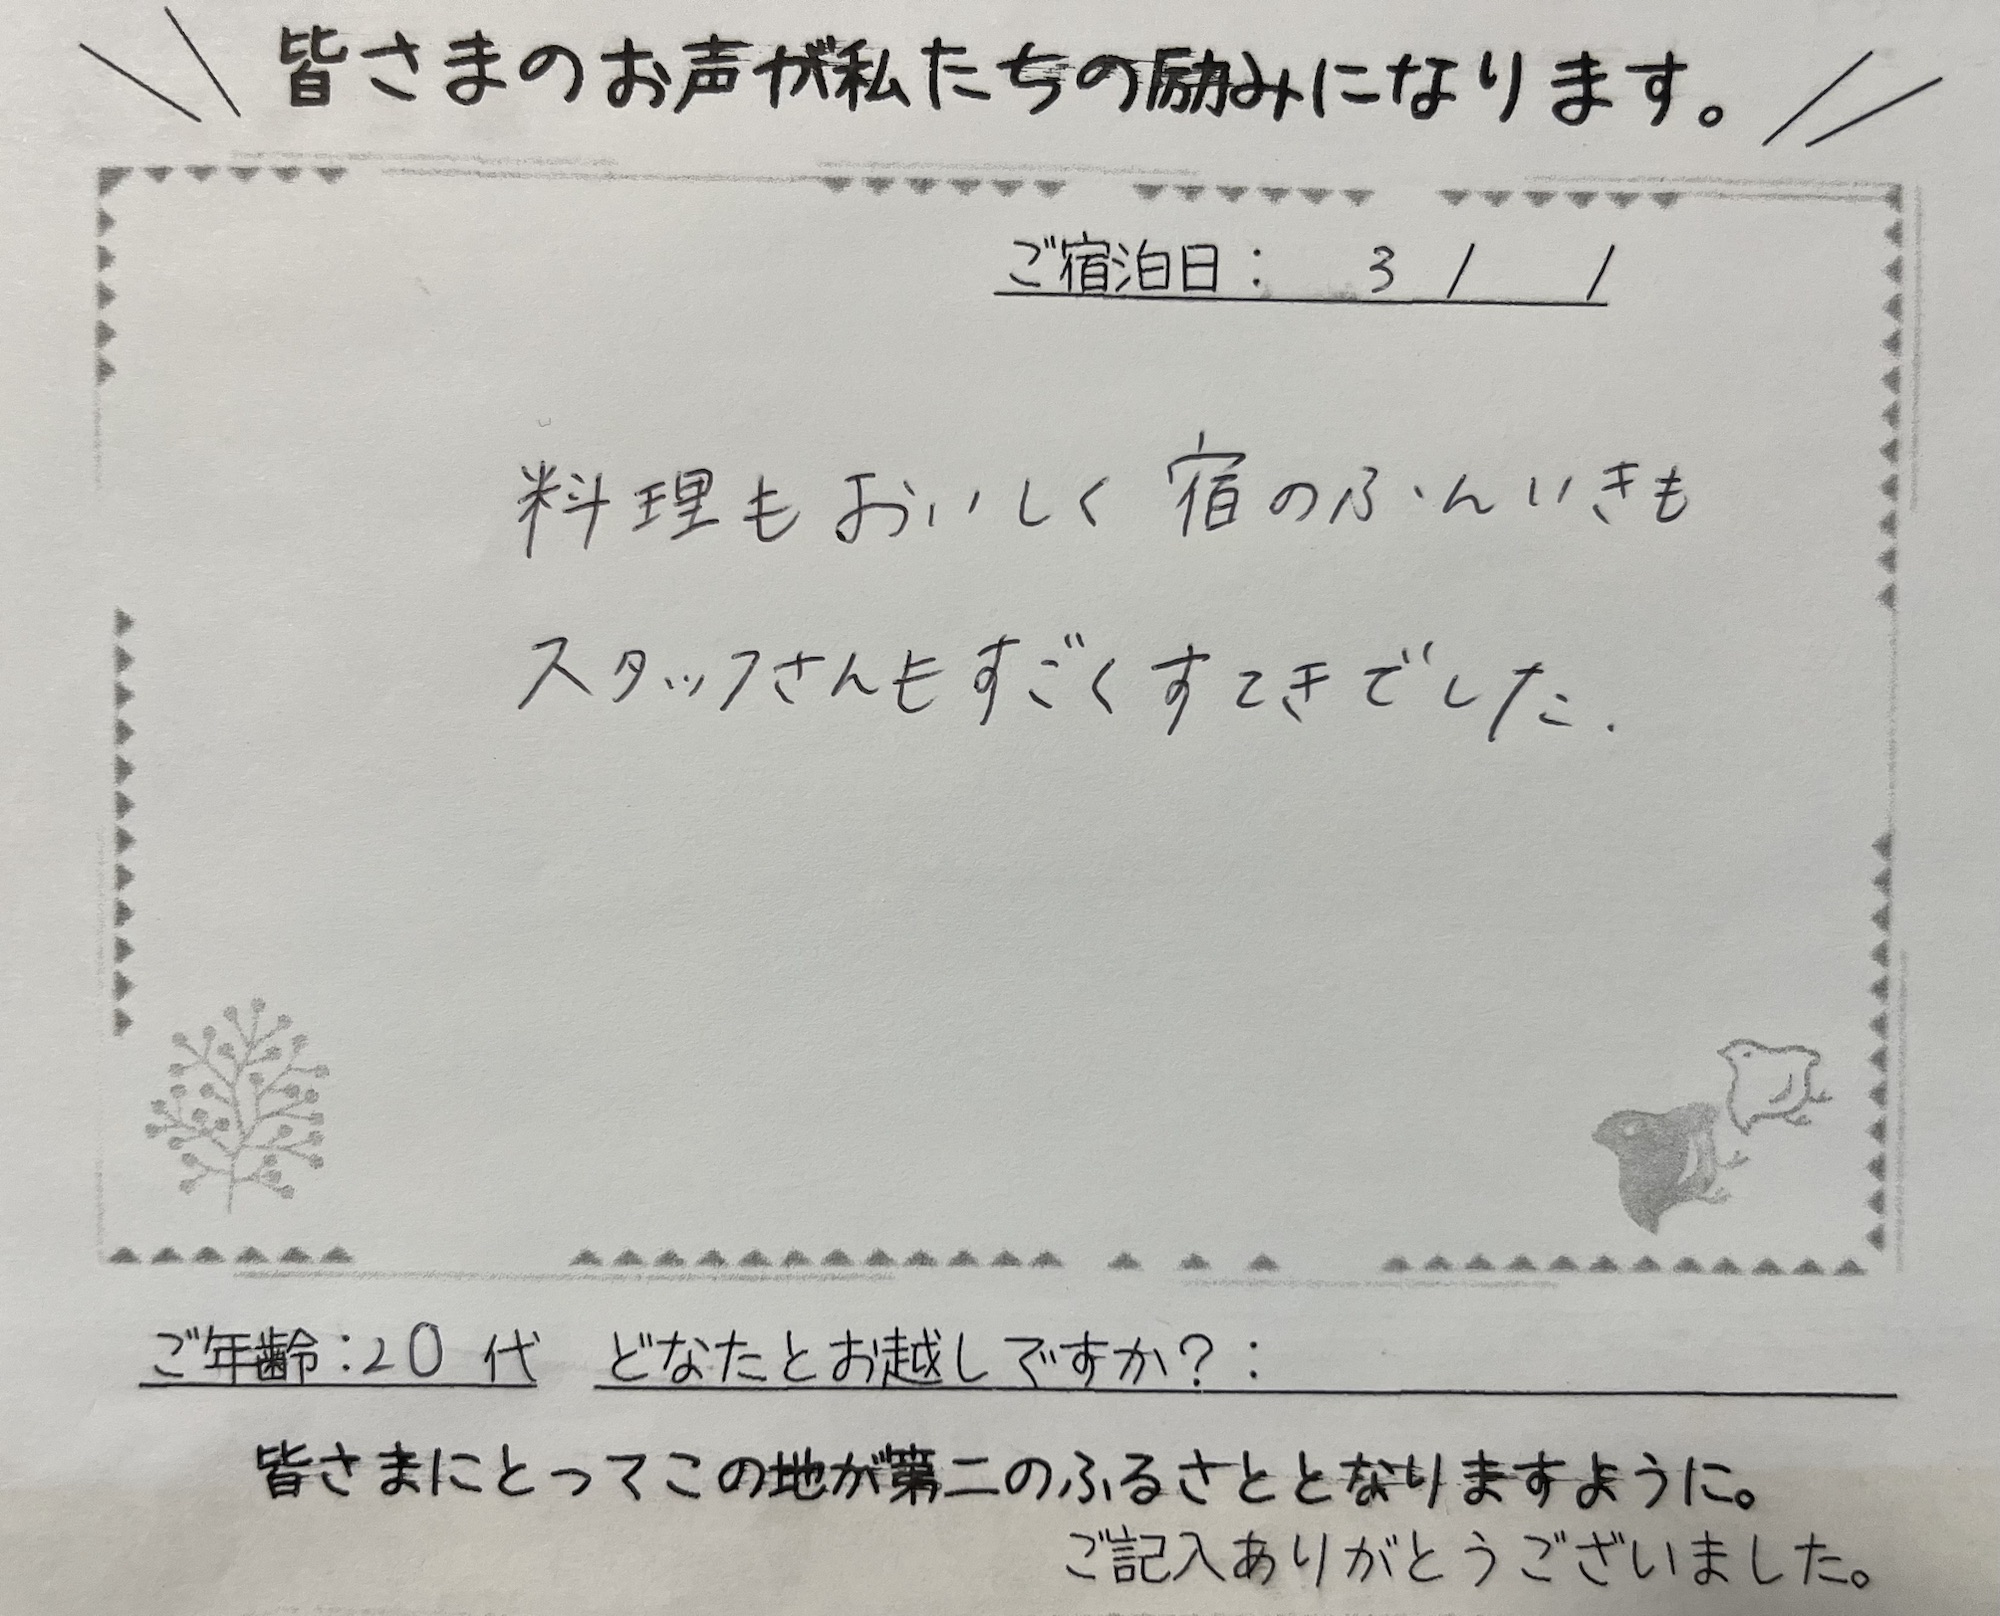 皆さまのお声が私たちの励みになります。
ご宿泊日： 3 / /
料理もおいしく 宿のふんいきも
スタッフさんもすごくすてきでした.
ご年齢：20 代 どなたとお越しですか？：
皆さまにとってこの地が第二のふるさととなりますように。
ご記入ありがとうございました。